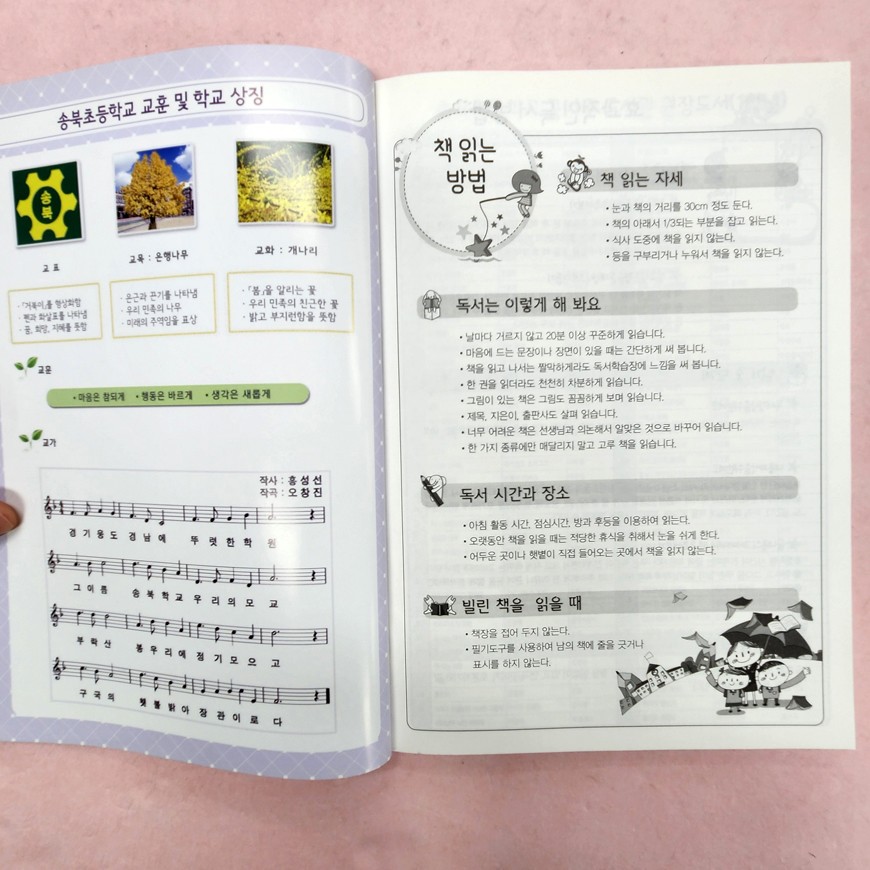 송북초등학교 교훈 및 학교 상징
송
북
교 표
교목 : 은행나무
교화 : 개나리
· 「거북이」를 형상화함
· 펜과 화살표를 나타냄
· 꿈, 희망, 지혜를 뜻함
· 은근과 끈기를 나타냄
· 우리 민족의 나무
· 미래의 주역임을 표상
· 「봄」을 알리는 꽃
· 우리 민족의 친근한 꽃
· 밝고 부지런함을 뜻함
교훈
• 마음은 참되게 • 행동은 바르게 • 생각은 새롭게
교가
작사 : 홍성선
작곡 : 오창진
경 기 웅 도 경 남 에 뚜 렷 한 학 원
그 이 름 송 북 학 교 우 리 의 모 교
부 락 산 봉 우 리 에 정 기 모 으 고
구 국 의 횃 불 밝 아 장 관 이 로 다
책 읽는
방법
책 읽는 자세
• 눈과 책의 거리를 30cm 정도 둔다.
• 책의 아래서 1/3되는 부분을 잡고 읽는다.
• 식사 도중에 책을 읽지 않는다.
• 등을 구부리거나 누워서 책을 읽지 않는다.
독서는 이렇게 해 봐요
• 날마다 거르지 않고 20분 이상 꾸준하게 읽습니다.
• 마음에 드는 문장이나 장면이 있을 때는 간단하게 써 봅니다.
• 책을 읽고 나서는 짤막하게라도 독서학습장에 느낌을 써 봅니다.
• 한 권을 읽더라도 천천히 차분하게 읽습니다.
• 그림이 있는 책은 그림도 꼼꼼하게 보며 읽습니다.
• 제목, 지은이, 출판사도 살펴 읽습니다.
• 너무 어려운 책은 선생님과 의논해서 알맞은 것으로 바꾸어 읽습니다.
• 한 가지 종류에만 매달리지 말고 고루 책을 읽습니다.
독서 시간과 장소
• 아침 활동 시간, 점심시간, 방과 후등을 이용하여 읽는다.
• 오랫동안 책을 읽을 때는 적당한 휴식을 취해서 눈을 쉬게 한다.
• 어두운 곳이나 햇볕이 직접 들어오는 곳에서 책을 읽지 않는다.
빌린 책을 읽을 때
• 책장을 접어 두지 않는다.
• 필기도구를 사용하여 남의 책에 줄을 긋거나
표시를 하지 않는다.